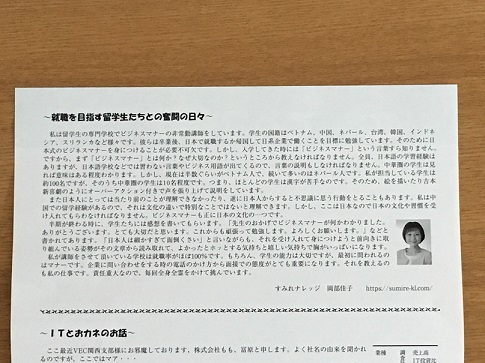 ～就職を目指す留学生たちとの奮闘の日々～
私は留学生の専門学校でビジネスマナーの非常勤講師をしています。学生の国籍はベトナム、中国、ネパール、台湾、韓国、インドネ
シア、スリランカなど様々です。彼らは卒業後、日本で就職するか帰国して日系企業で働くことを目標に勉強しています。そのために日
本式のビジネスマナーを身につけることが必要不可欠です。しかし、入学してきた時には「ビジネスマナー」という言葉すら知りません。
ですから、まず「ビジネスマナー」とは何か？なぜ大切なのか？というところから教えなければなりません。全員、日本語の学習経験はあ
りますが、日本語学校などでは習わない言葉やビジネス用語が出てくるので、言葉の説明もしなければなりません。中華圏の学生は見
れば意味はある程度わかります。しかし、現在は半数ぐらいがベトナム人で、続いて多いのはネパール人です。私が担当している学生は
約100名ですが、そのうち中華圏の学生は10名程度です。つまり、ほとんどの学生は漢字が苦手なのです。そのため、絵を描いたり吉本
新喜劇のようにオーバーアクション付きで声を張り上げて説明しています。
また日本人にとっては当たり前のことが理解できなかったり、逆に日本人からすると不思議に思う行動をとることもあります。私は中国
での留学経験があるので、それは文化の違いで特別なことではないと理解できます。しかし、ここは日本なので日本の文化や習慣を受
け入れてもらわなければなりません。ビジネスマナーも正に日本の文化の一つです。
半期が終わる時に、学生たちには感想を書いてもらいます。「先生のおかげでビジネスマナーが何かわかりました。
ありがとうございます。とても大切だと思います。これからも頑張って勉強します。よろしくお願いします。」などと
書かれてあります。「日本人は細かすぎて面倒くさい」と言いながらも、それを受け入れて身につけようと前向きに取
り組んでいる姿勢がその文章から読み取れて、よかったとホッとする気持ちと嬉しい気持ちで胸がいっぱいになります。
私が講師をさせて頂いている学校は就職率がほぼ100%です。もちろん、学生の能力は大切ですが、最初に問われるの
はマナーです。企業に問い合わせをする時の電話のかけ方から面接での態度がとても重要になります。それを教えるの
も私の仕事です。責任重大なので、毎回全身全霊をかけて挑んでいます。
すみれナレッジ 岡部佳子 https://sumire-kl.com/
～ＩＴとおカネのお話～
ここ最近VEC関西支部様にお邪魔しております、株式会社もも、冨原と申します。よく社名の由来を聞かれ
るのですが、ここではマア・・・
業種
売上高
IT投資元